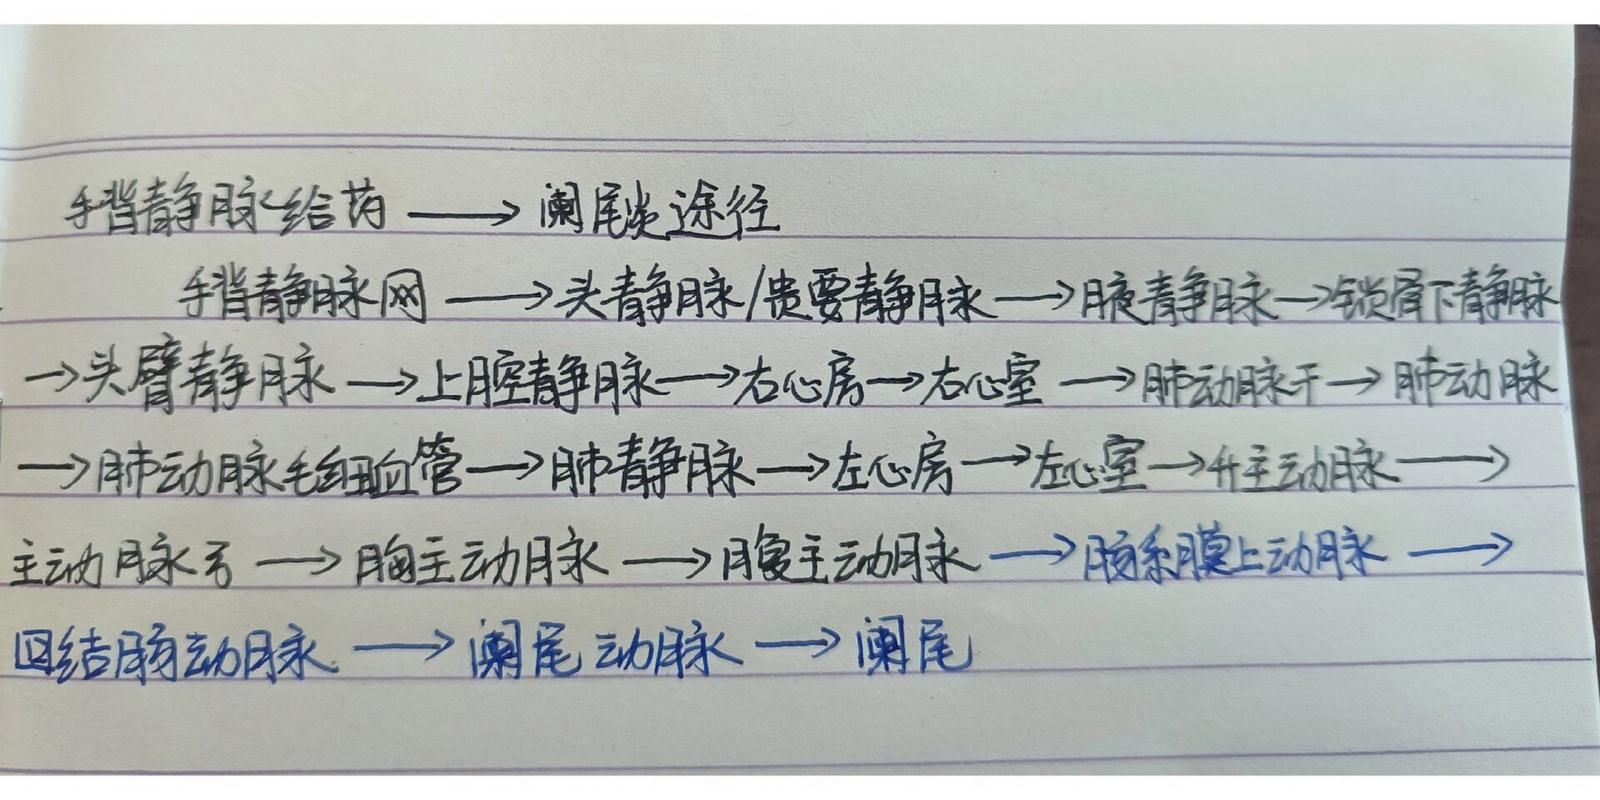 手背静脉给药 → 阑尾炎途径
手背静脉网 → 头静脉/贵要静脉 → 腋静脉 → 锁骨下静脉
→ 头臂静脉 → 上腔静脉 → 右心房 → 右心室 → 肺动脉干 → 肺动脉
→ 肺动脉毛细血管 → 肺静脉 → 左心房 → 左心室 → 升主动脉 →
主动脉弓 → 胸主动脉 → 腹主动脉 → 肠系膜上动脉 →
回结肠动脉 → 阑尾动脉 → 阑尾